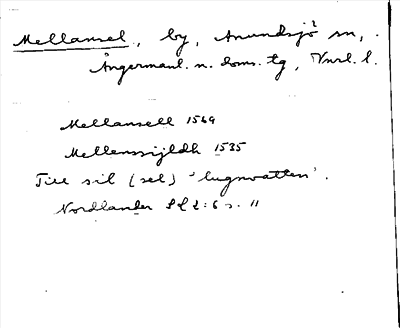 Mellansel, by, Anundsjö sn,
Ångermanl. n. doms. tg, Vnrl. l.
Mellansell 1569
Mellenssijldh 1535
Till sil (sel) 'lugnvatten'.
Nordlander 2:6 s. 11